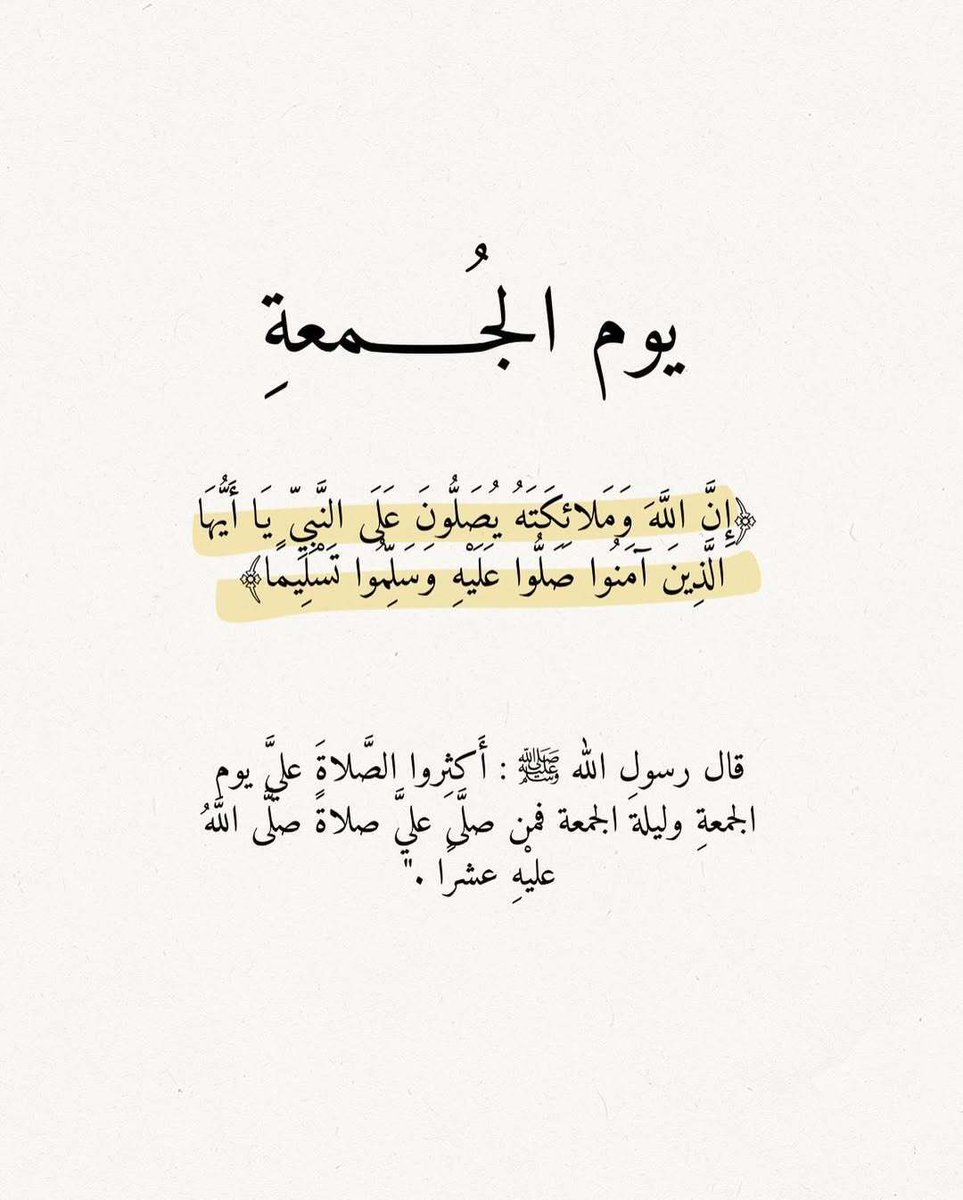 يوم الجُـــمعةِ
﴿إِنَّ اللَّهَ وَمَلائِكَتَهُ يُصَلُّونَ عَلَى النَّبِيِّ يَا أَيُّهَا
الَّذِينَ آمَنُوا صَلُّوا عَلَيْهِ وَسَلِّمُوا تَسْلِيمًا﴾
قال رسولِ الله ﷺ : أَكثِروا الصَّلاةَ عليَّ يوم
الجمعةِ وليلة الجمعة فمن صلَّى عليَّ صلاةً صلَّى اللَّهُ
عليْهِ عشرًا ."